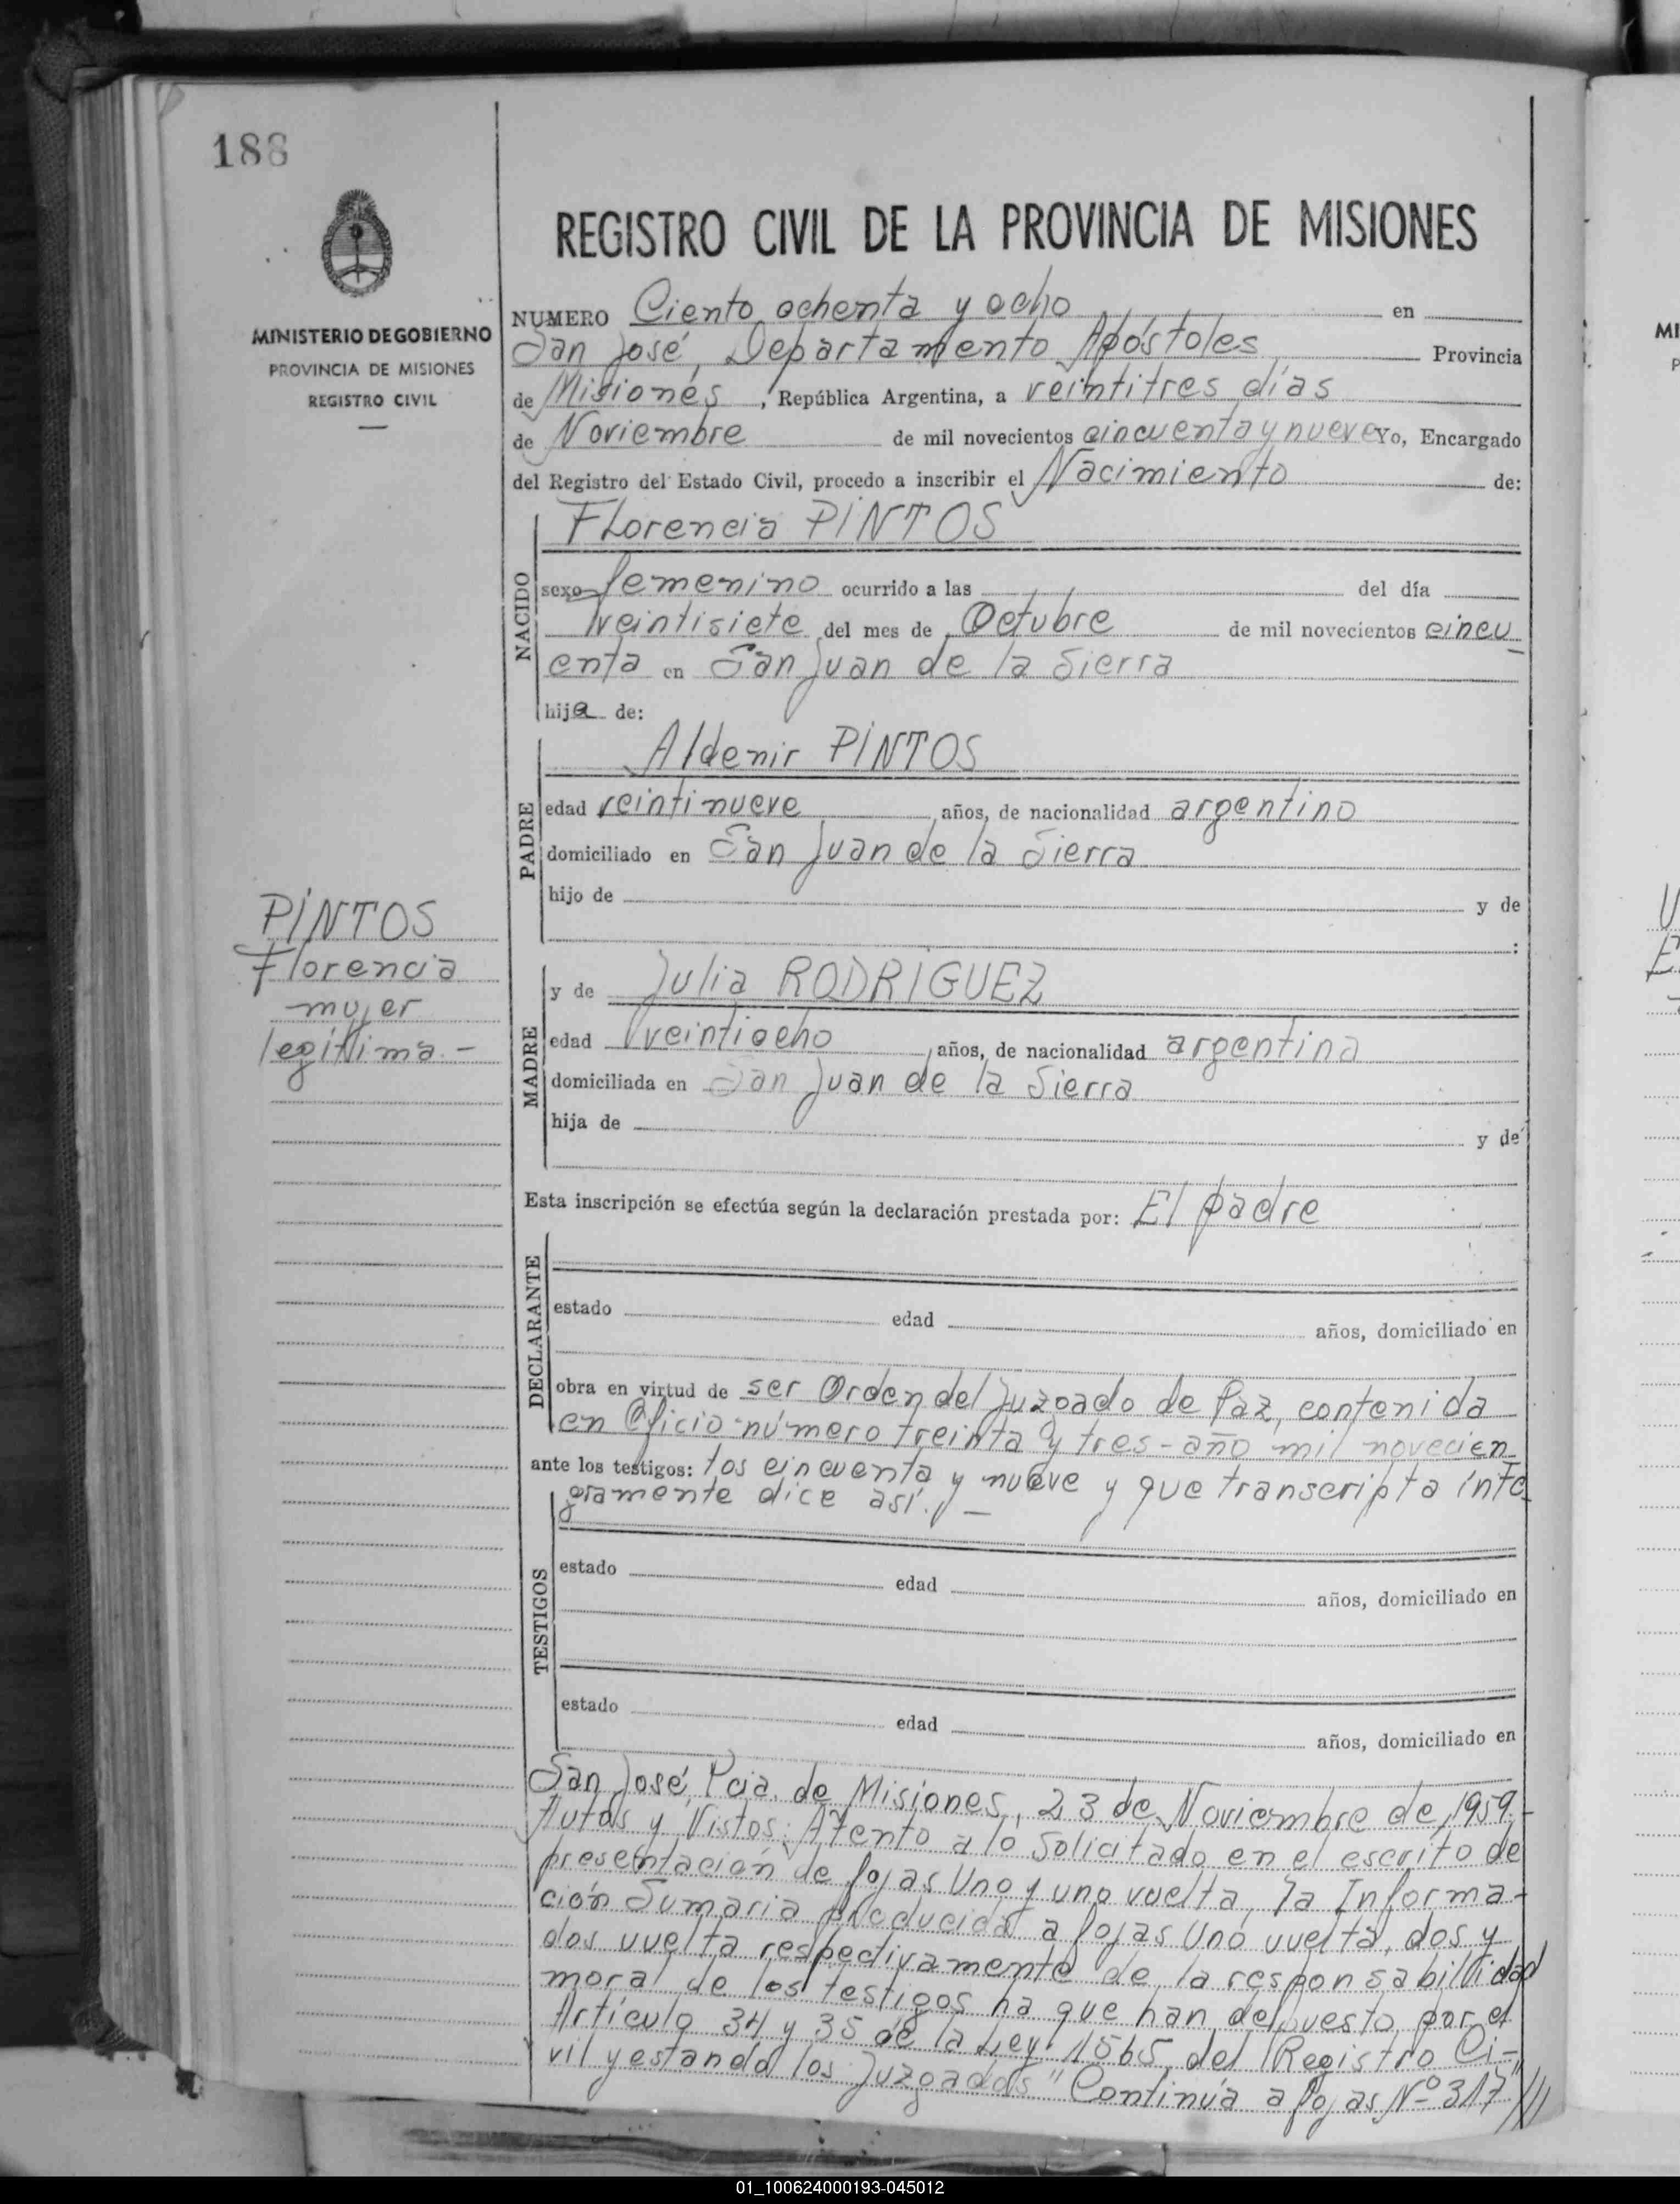 188
MINISTERIO DE GOBIERNO
PROVINCIA DE MISIONES
REGISTRO CIVIL
PINTOS
Florencia
mujer
legítima.-
REGISTRO CIVIL DE LA PROVINCIA DE MISIONES
NUMERO Ciento ochenta y ocho en
San José, Departamento Apóstoles Provincia
de Misiones, República Argentina, a veintitres días
de Noviembre de mil novecientos cincuenta y nueve Yo, Encargado
del Registro del Estado Civil, procedo a inscribir el Nacimiento de:
NACIDO
Florencia PINTOS
sexo femenino ocurrido a las del día
veintisiete del mes de Octubre de mil novecientos cincu
enta en San Juan de la Sierra
hija de:
PADRE
Aldenir PINTOS
edad veintinueve años, de nacionalidad argentino
domiciliado en San Juan de la Sierra
hijo de y de
:
MADRE
y de Julia RODRIGUEZ
edad veintiocho años, de nacionalidad argentina
domiciliada en San Juan de la Sierra
hija de y de
Esta inscripción se efectúa según la declaración prestada por: El padre
DECLARANTE
estado edad años, domiciliado en
obra en virtud de ser Orden del Juzgado de Paz, contenida
en Oficio número treinta y tres - año mil novecien
ante los testigos: tos cincuenta y nueve y que transcripta ínte
gramente dice así. —
TESTIGOS
estado edad años, domiciliado en
estado edad años, domiciliado en
San José, Pcia. de Misiones, 23 de Noviembre de 1959.-
Autos y Vistos: Atento a lo solicitado en el escrito de
presentación de fojas Uno y uno vuelta, la Informa-
ción Sumaria producida a fojas Uno vuelta, dos y
dos vuelta respectivamente de la responsabilidad
moral de los testigos ha que han depuesto por el
Artículo 34 y 35 de la Ley 11565 del Registro Ci-
vil y estando los Juzgados" Continúa a fojas Nº 317"
01_100624000193-045012